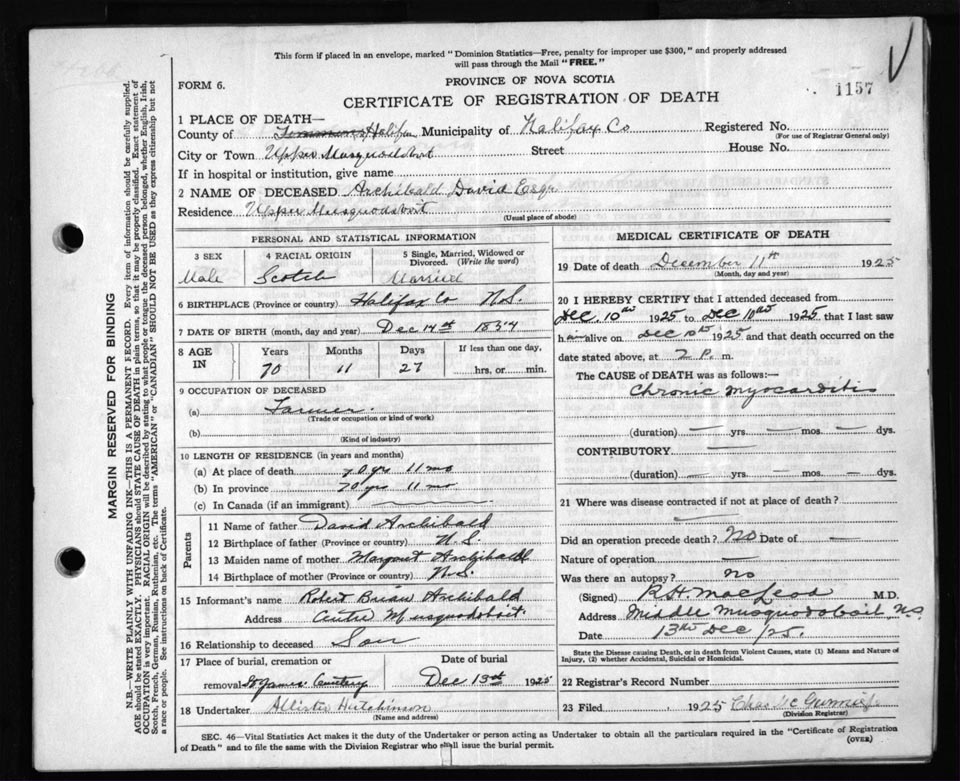 This form if placed in an envelope, marked "Dominion Statistics—Free, penalty for improper use $300," and properly addressed
will pass through the Mail "FREE."
FORM 6.
PROVINCE OF NOVA SCOTIA
1157
CERTIFICATE OF REGISTRATION OF DEATH
1 PLACE OF DEATH—
County of Halifax Municipality of Halifax Co Registered No.
(For use of Registrar General only)
City or Town Upper Musquodoboit Street House No.
If in hospital or institution, give name
2 NAME OF DECEASED Archibald David Esqr
Residence Upper Musquodoboit
(Usual place of abode)
PERSONAL AND STATISTICAL INFORMATION
3 SEX 4 RACIAL ORIGIN 5 Single, Married, Widowed or
Divorced. (Write the word)
Male Scotch Married
6 BIRTHPLACE (Province or country) Halifax Co N.S.
7 DATE OF BIRTH (month, day and year) Dec 14th
8 AGE IN Years Months Days If less than one day,
70 11 27 hrs. or min.
9 OCCUPATION OF DECEASED
(a) Farmer.
(Trade or occupation or kind of work)
(b)
(Kind of industry)
10 LENGTH OF RESIDENCE (in years and months)
(a) At place of death 70 yrs 11 mo
(b) In province 70 yrs 11 mo
(c) In Canada (if an immigrant)
Parents
11 Name of father David Archibald
12 Birthplace of father (Province or country) N.S.
13 Maiden name of mother Margaret Archibald
14 Birthplace of mother (Province or country) N.S.
15 Informant's name Robert Archibald
Address Centre Musquodoboit.
16 Relationship to deceased Son
17 Place of burial, cremation or Date of burial
removal St James Cemetery Dec 13th 1925
18 Undertaker Allister Hutchinson
(Name and address)
MEDICAL CERTIFICATE OF DEATH
19 Date of death December 11th 1925
(Month, day and year)
20 I HEREBY CERTIFY that I attended deceased from
Dec. 10th 1925 to Dec 10th 1925 that I last saw
him alive on Dec 10th 1925 and that death occurred on the
date stated above, at 2 P. m.
The CAUSE OF DEATH was as follows:—
Chronic myocarditis
(duration) — yrs. — mos. — dys.
CONTRIBUTORY —
(duration) — yrs. — mos. — dys.
21 Where was disease contracted if not at place of death?
Did an operation precede death? No Date of —
Nature of operation —
Was there an autopsy? no
(Signed) R.H. MacLeod M.D.
Address Middle Musquodoboit N.S.
Date 13th Dec /25.
State the Disease causing Death, or in death from Violent Causes, state (1) Means and Nature of
Injury, (2) whether Accidental, Suicidal or Homicidal.
22 Registrar's Record Number
23 Filed 1925 Chas
(Division Registrar)
SEC. 46—Vital Statistics Act makes it the duty of the Undertaker or person acting as Undertaker to obtain all the particulars required in the "Certificate of Registration
of Death" and to file the same with the Division Registrar who shall issue the burial permit.
(OVER)
MARGIN RESERVED FOR BINDING
N.B.—WRITE PLAINLY WITH UNFADING INK—THIS IS A PERMANENT RECORD. Every item of information should be carefully supplied.
AGE should be stated EXACTLY. PHYSICIANS should STATE CAUSE OF DEATH in plain terms, so that it may be properly classified. Exact statement of
OCCUPATION is very important. RACIAL ORIGIN will be described by stating to what people or tongue the deceased person belonged, whether English, Irish,
Scotch, French, German, Russian, Ruthenian, etc. The terms "AMERICAN" or "CANADIAN" SHOULD NOT BE USED as they express citizenship but not
a race or people. See instructions on back of Certificate.